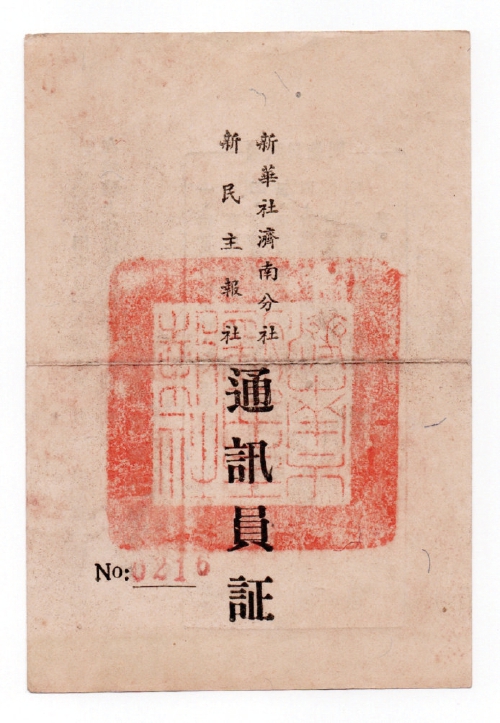 新華社濟南分社
新民主報社
通訊員証
No: 0216